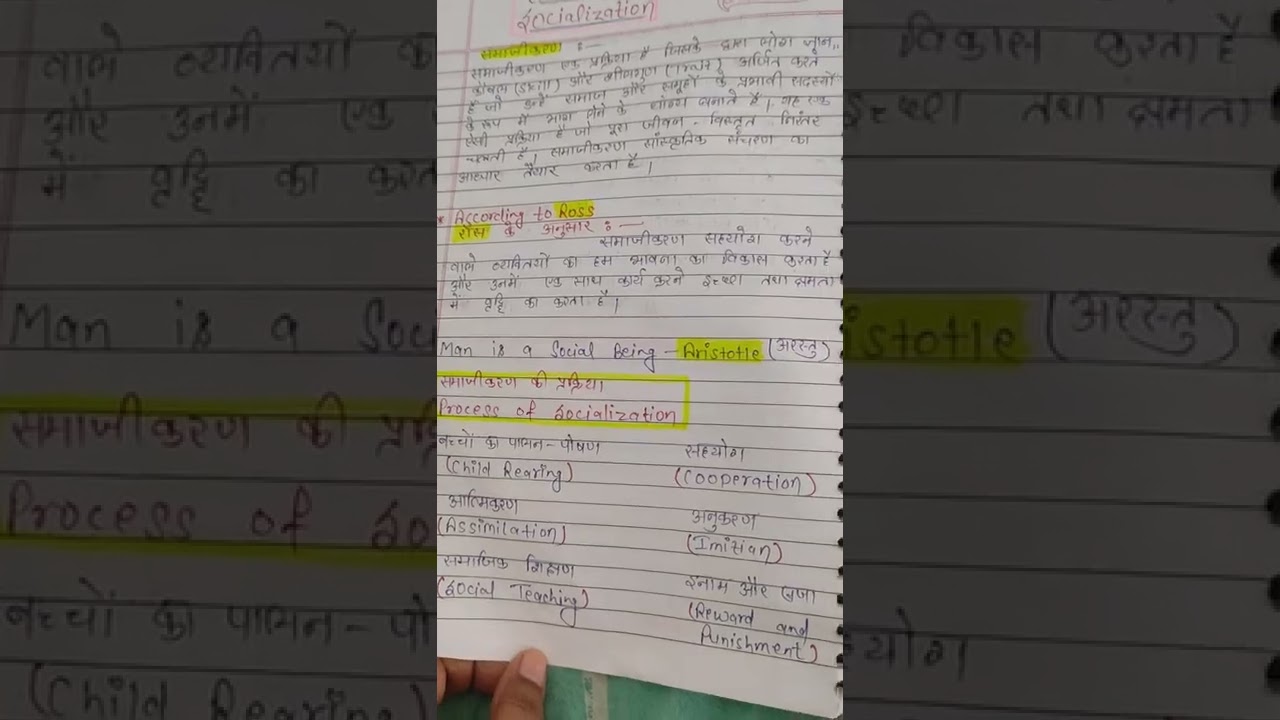 Socialization
समाजीकरण :—
समाजीकरण एक प्रक्रिया है जिसके द्वारा लोग ज्ञान,
कौशल (Skill) और शीलगुण (Trait) अर्जित करते
है जो उन्हें समाज और समूहों के प्रभावी सदस्यों
के रूप में भाग लेने के योग्य बनाते है। यह एक
ऐसी प्रक्रिया है जो पूरा जीवन - विस्तृत निरंतर
चलती है। समाजीकरण सांस्कृतिक संचरण का
आधार तैयार करता है।
* According to Ross
रॉस के अनुसार :—
समाजीकरण सहयोग करने
वाले व्यक्तियों का हम भावना का विकास करता है
और उनमें एक साथ कार्य करने इच्छा तथा क्षमता
में वृद्धि का करता है।
Man is a Social Being - Aristotle (अरस्तु)
समाजीकरण की प्रक्रिया
Process of Socialization
बच्चों का पालन - पोषण सहयोग
(Child Rearing) (Cooperation)
आत्मिकरण अनुकरण
(Assimilation) (Imitian)
समाजिक शिक्षण इनाम और सजा
(Social Teaching) (Reward and
Punishment)